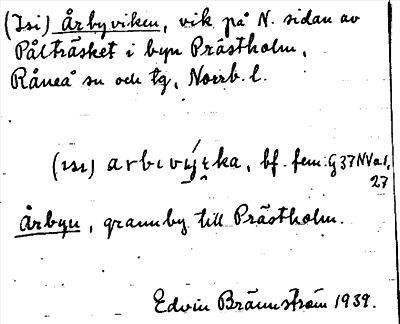 (Isi) Årbyviken, vik på N. sidan av
Pålträsket i byn Prästholm,
Råneå sn och tg, Norrb. l.
(ısı) arbıvíka, bf. fem. G37NVa1,
27
Årbyn, grannby till Prästholm.
Edvin Brännström 1939.